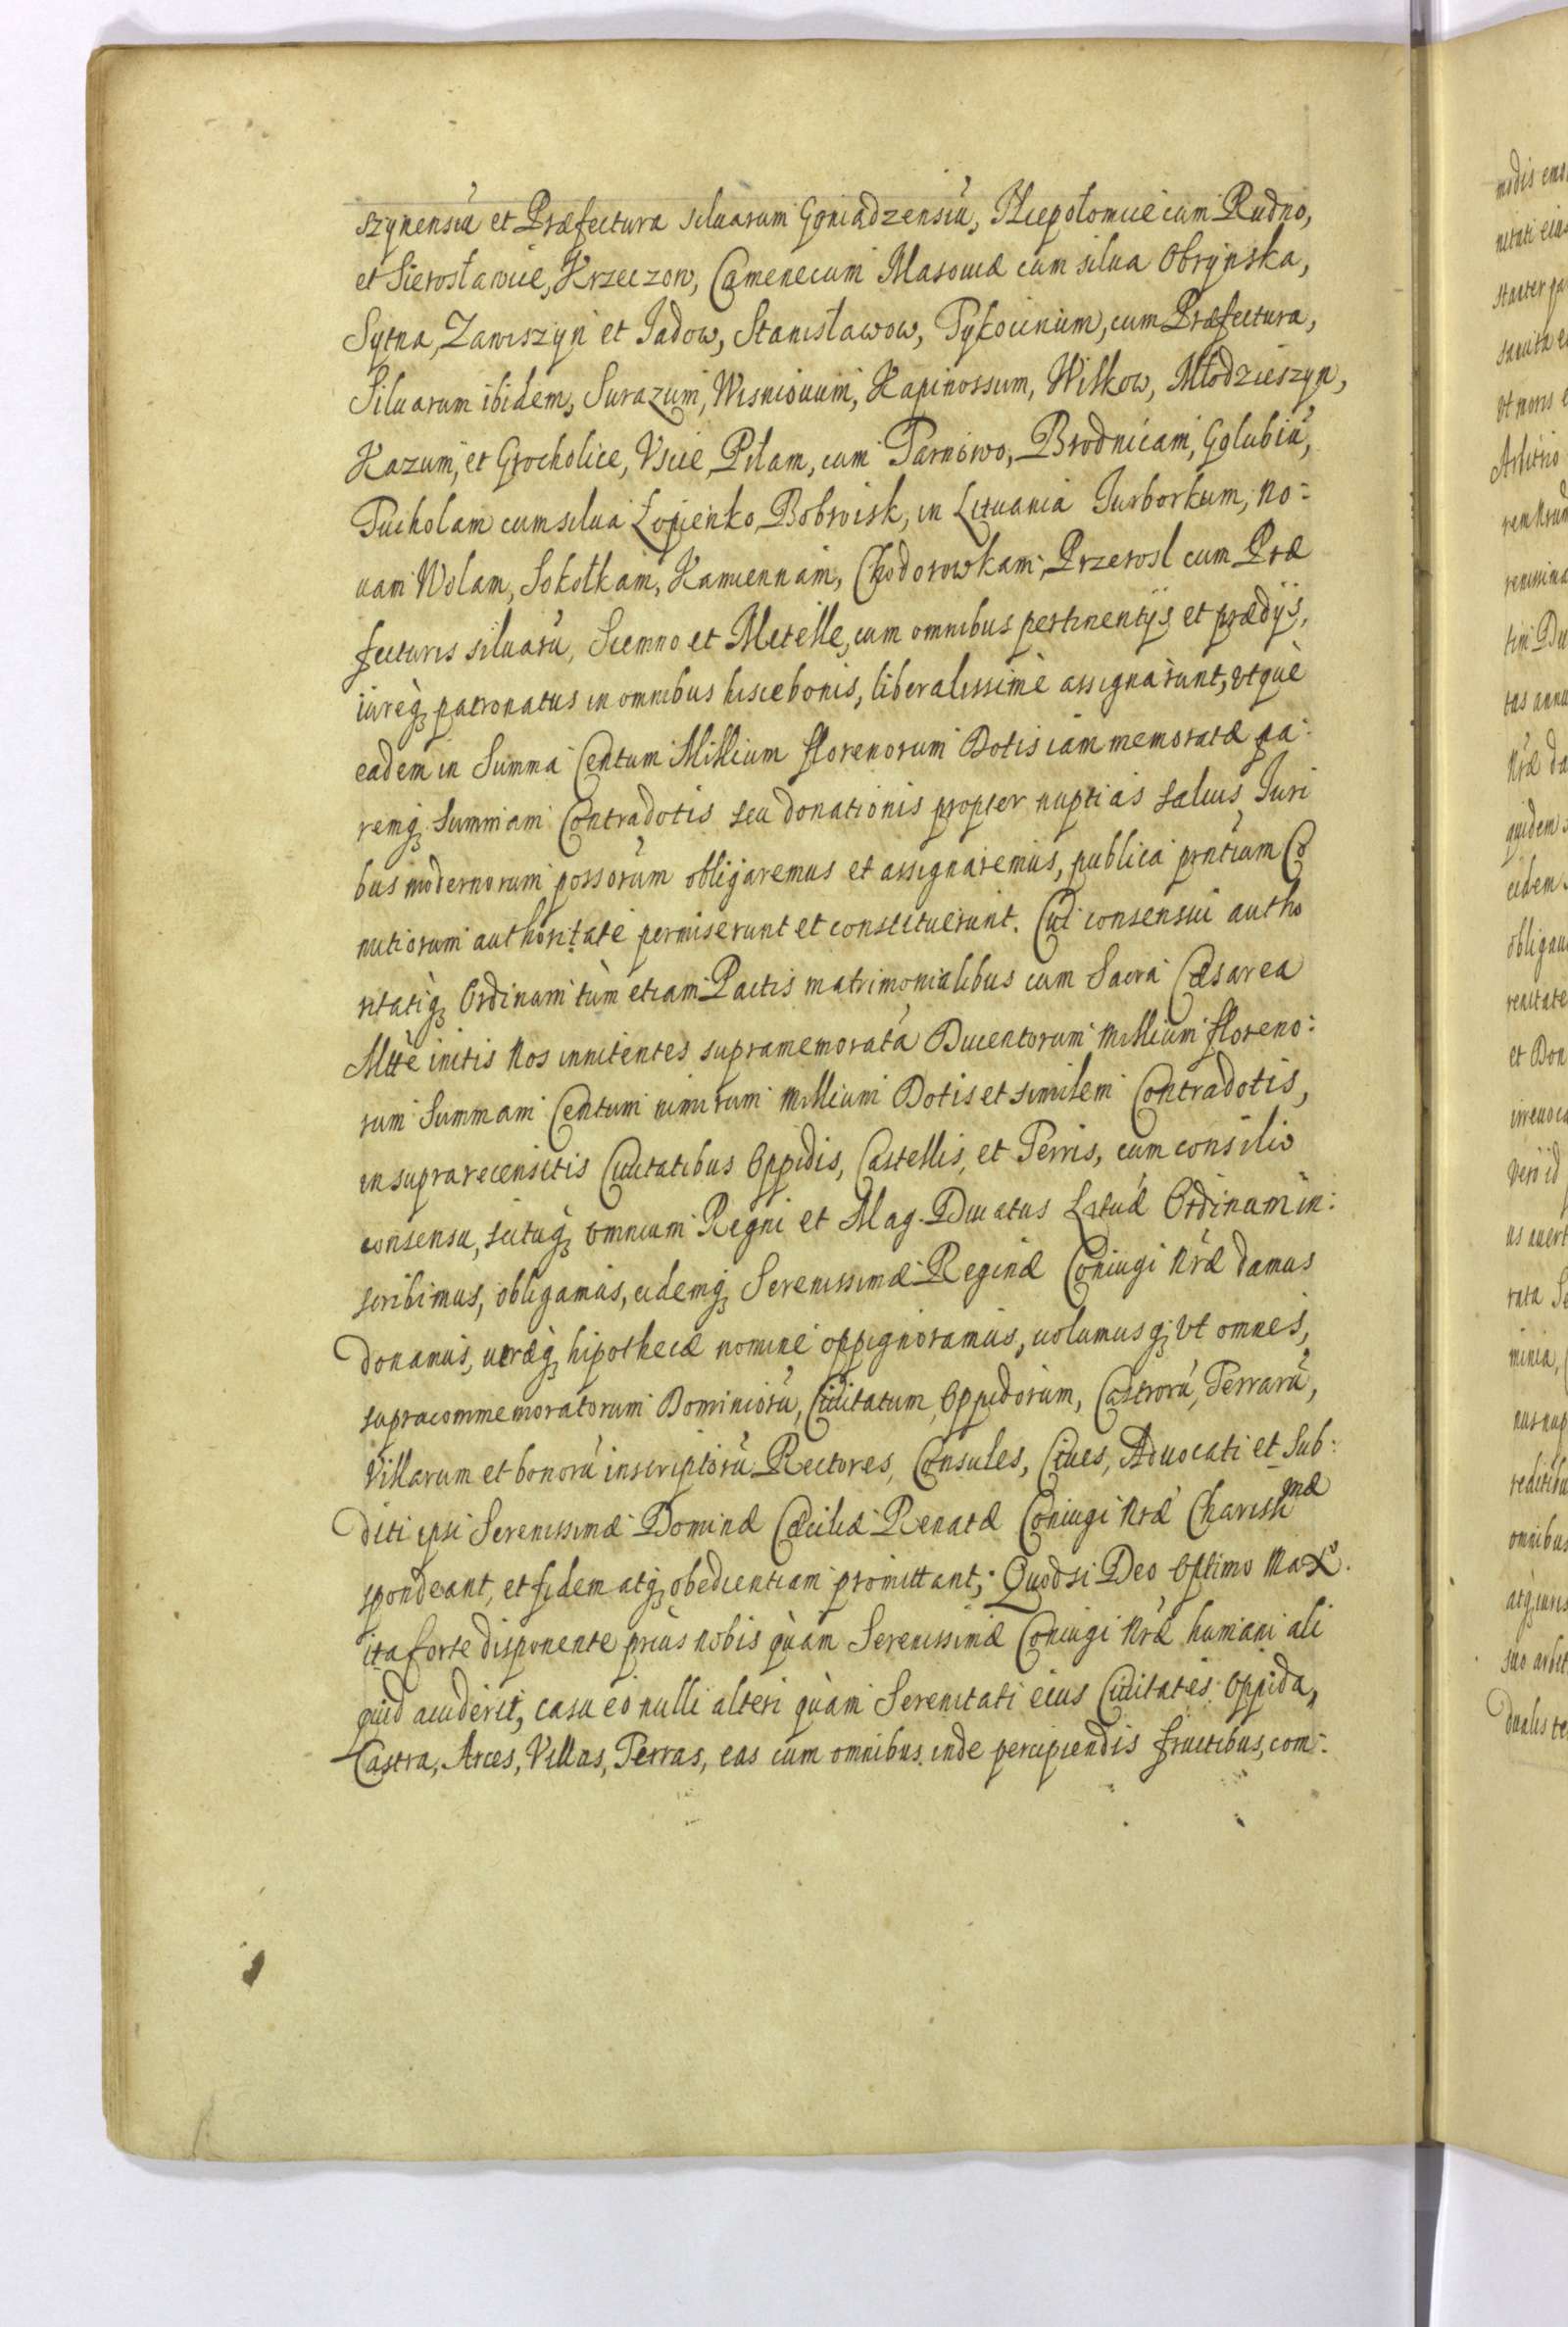 szynensiu et Præfectura siluarum Goniadzensiu, Niepołomice cum Rudno,
et Sierosławice, Krzeczow, Camenecum Masouiæ cum silua Obrynska,
Sytna, Zawiszyn et Jadow, Stanisławow, Tykocinium, cum Præfectura,
Siluarum ibidem, Surazum, Wisniouum, Kapinossum, Wilkow, Młodzieszyn,
Kazum, et Grocholice, Vscie, Pilam, cum Tarnowo, Brodnicam, Golubiu,
Tucholam cum silua Łopienko, Bobroisk, in Lituania Jurborkum, No:
uam Wolam, Sokołkam, Kamiennam, Chodorowkam, Przerosl cum Præ
fecturis siluaru, Siemno et Metelle, cum omnibus pertinentijs et prædijs,
iureq; patronatus in omnibus hisce bonis, liberalissimè assignarunt, vtquè
eadem in Summa Centum Millium florenorum Dotis iam memoratæ pa:
remq; summam Contradotis seu donationis propter nuptias saluis Juri
bus modernorum possorum obligaremus et assignaremus, publica pntium Co
mitiorum authoritate permiserunt et constituerunt. Cui consensui autho
ritatiq; Ordinum tùm etiam Pactis matrimonialibus cum Sacra Cæsarea
Mtte initis Nos innitentes supramemorata Ducentorum millium floreno:
rum Summam Centum nimirum millium Dotis et similem Contradotis,
in suprarecensitis Ciuitatibus Oppidis, Castellis, et Terris, cum consilio
consensu, scituq; omnium Regni et Mag. Ducatus Lituæ Ordinum in:
scribimus, obligamus, eidemq; Serenissimæ Reginæ Coniugi Nræ damus
donamus, veræq; hipothecæ nomine oppignoramus, uolumusq; vt omnes,
supracommemoratorum Dominioru, Ciuitatum, Oppidorum, Castroru, Terraru,
Villarum et bonoru inscriptoru Rectores, Consules, Ciues, Aduocati et Sub:
diti ipsi Serenissimæ Dominæ Cæciliæ Renatæ Coniugi Nræ Charissimæ
spondeant, et fidem atq; obedientiam promittant; Quodsi Deo Optimo Maxo.
ita forte disponente priùs nobis quàm Serenissimæ Coniugi Nræ humani ali
quid acciderit, casu eo nulli alteri quàm Serenitati eius Ciuitates Oppida,
Castra, Arces, Villas, Terras, eas cum omnibus inde percipiendis fructibus, com: